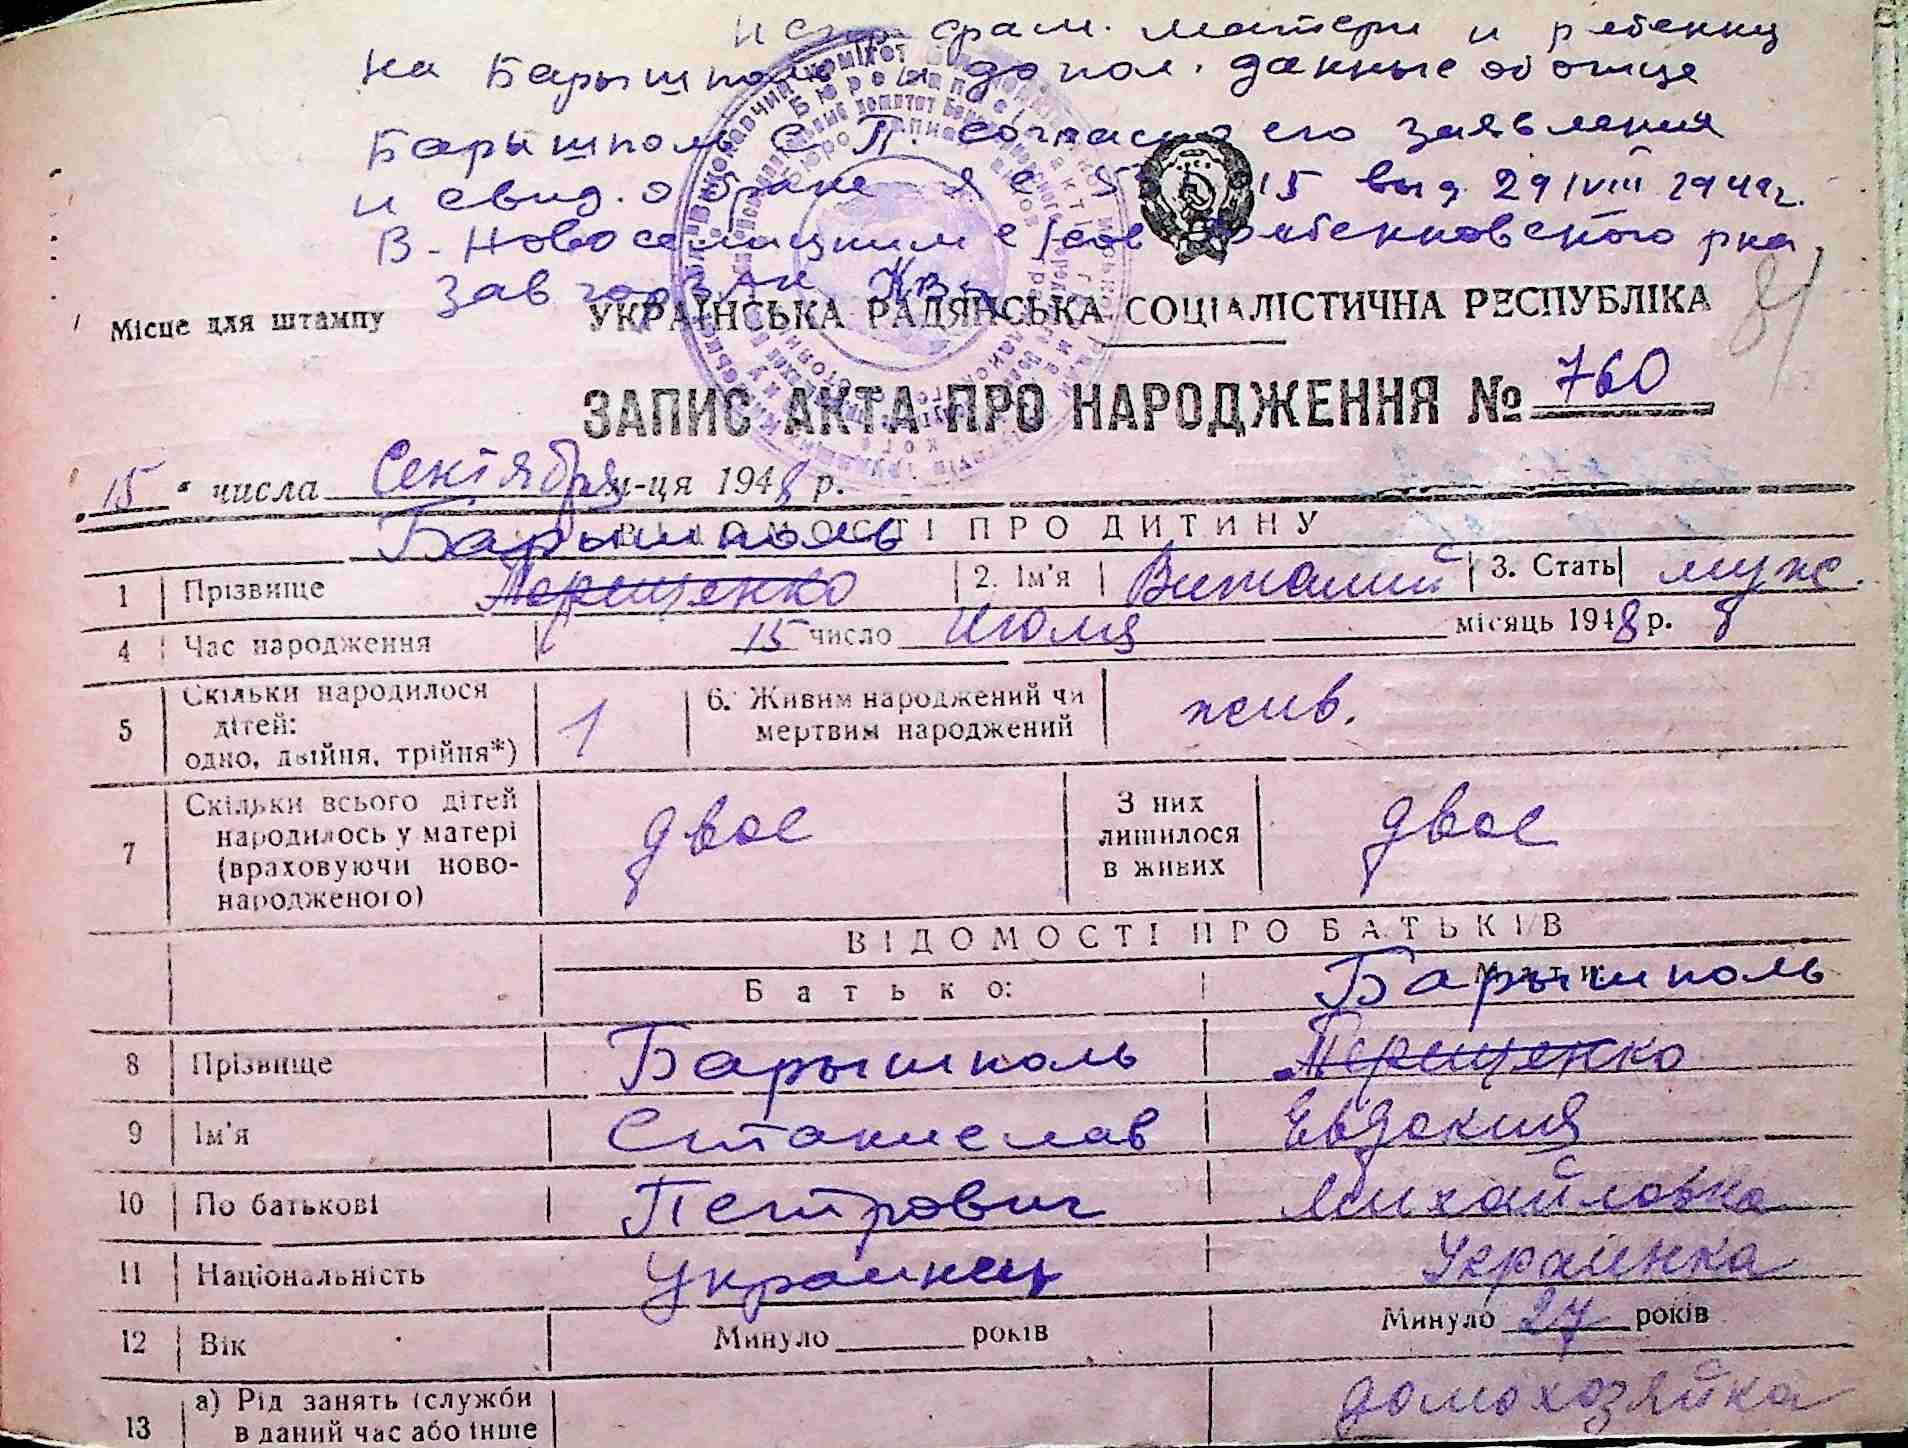 испр. фам. матери и ребенку
на Барышполь и допол. данные об отце
Барышполь С. П. согласно его заявления
и свид. о браке выд. 29/VIII 1949 г.
В-Новоселицким с/сов
Зав горЗАГС
Місце для штампу
УКРАЇНСЬКА РАДЯНСЬКА СОЦІАЛІСТИЧНА РЕСПУБЛІКА
81
ЗАПИС АКТА ПРО НАРОДЖЕННЯ № 760
15 " числа Сентября м-ця 1948 р.
ВІДОМОСТІ ПРО ДИТИНУ
Барышполь
1 Прізвище Терещенко 2. Ім'я Виталий 3. Стать муж.
4 Час народження 15 число Июля місяць 1948 р. 8
5 Скільки народилося дітей: одно, двійня, трійня*) 1 6. Живим народжений чи мертвим народжений жив.
7 Скільки всього дітей народилось у матері (враховуючи новонародженого) двое З них лишилося в живих двое
ВІДОМОСТІ ПРО БАТЬКІВ
Батько: Мати:
Барышполь
8 Прізвище Барышполь Терещенко
9 Ім'я Станислав Евдокия
10 По батькові Петрович Михайловна
11 Національність Украинец Украинка
12 Вік Минуло років Минуло 27 років
13 а) Рід занять (служби в даний час або інше домохозяйка